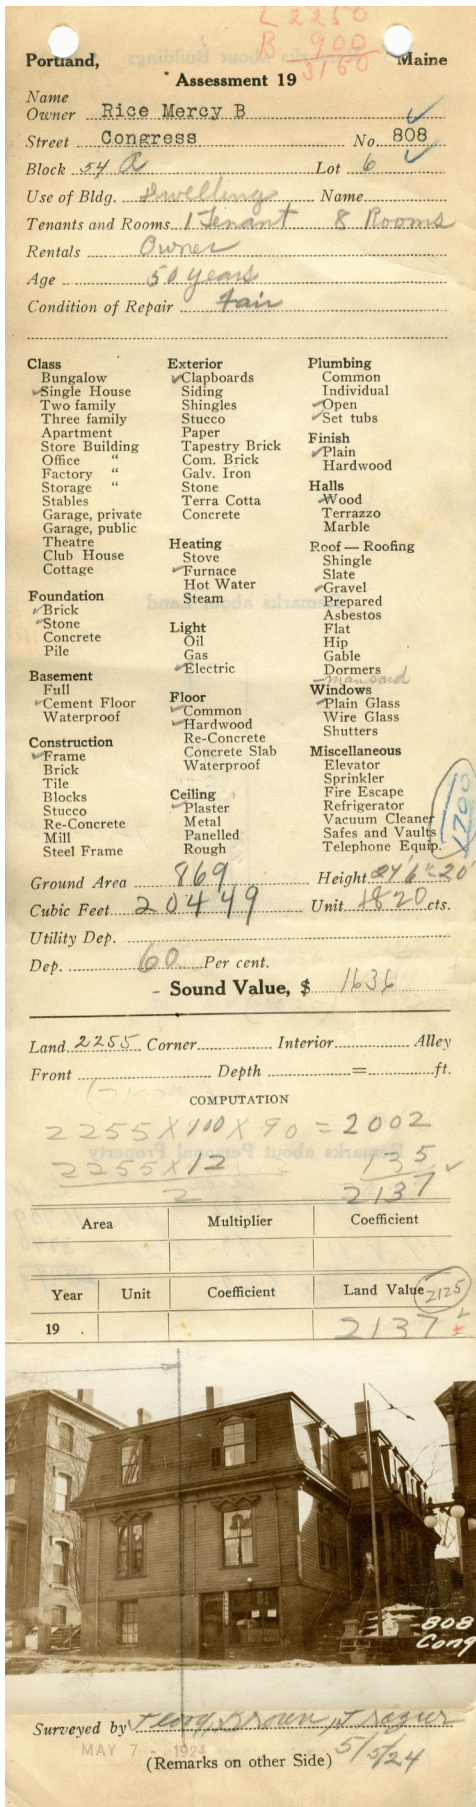 L 2250
B 900
3150
Portland, Maine
Assessment 19
Name
Owner Rice Mercy B
Street Congress No. 808
Block 54 A Lot 6
Use of Bldg. Dwelling Name
Tenants and Rooms 1 Tenant 8 Rooms
Rentals Owner
Age 50 years
Condition of Repair Fair
Class
Bungalow
Single House
Two family
Three family
Apartment
Store Building
Office "
Factory "
Storage "
Stables
Garage, private
Garage, public
Theatre
Club House
Cottage
Foundation
Brick
Stone
Concrete
Pile
Basement
Full
Cement Floor
Waterproof
Construction
Frame
Brick
Tile
Blocks
Stucco
Re-Concrete
Mill
Steel Frame
Exterior
Clapboards
Siding
Shingles
Stucco
Paper
Tapestry Brick
Com. Brick
Galv. Iron
Stone
Terra Cotta
Concrete
Heating
Stove
Furnace
Hot Water
Steam
Light
Oil
Gas
Electric
Floor
Common
Hardwood
Re-Concrete
Concrete Slab
Waterproof
Ceiling
Plaster
Metal
Panelled
Rough
Plumbing
Common
Individual
Open
Set tubs
Finish
Plain
Hardwood
Halls
Wood
Terrazzo
Marble
Roof — Roofing
Shingle
Slate
Gravel
Prepared
Asbestos
Flat
Hip
Gable
Dormers
mansard
Windows
Plain Glass
Wire Glass
Shutters
Miscellaneous
Elevator
Sprinkler
Fire Escape
Refrigerator
Vacuum Cleaner
Safes and Vaults
Telephone Equip.
Ground Area 869 Height 24'6"-20'
Cubic Feet 20449 Unit 20 cts.
Utility Dep.
Dep. 60 Per cent.
Sound Value, $ 1636
Land 2255 Corner Interior Alley
Front Depth = ft.
COMPUTATION
2255 X 100 X 90 = 2002
2255 X 12 135
2 2137
Area Multiplier Coefficient
Year Unit Coefficient Land Value 2125
19 2137
LAUNDRY
808
Cong
Surveyed by Brown,
MAY 7 - 1924
5/5/24
(Remarks on other Side)